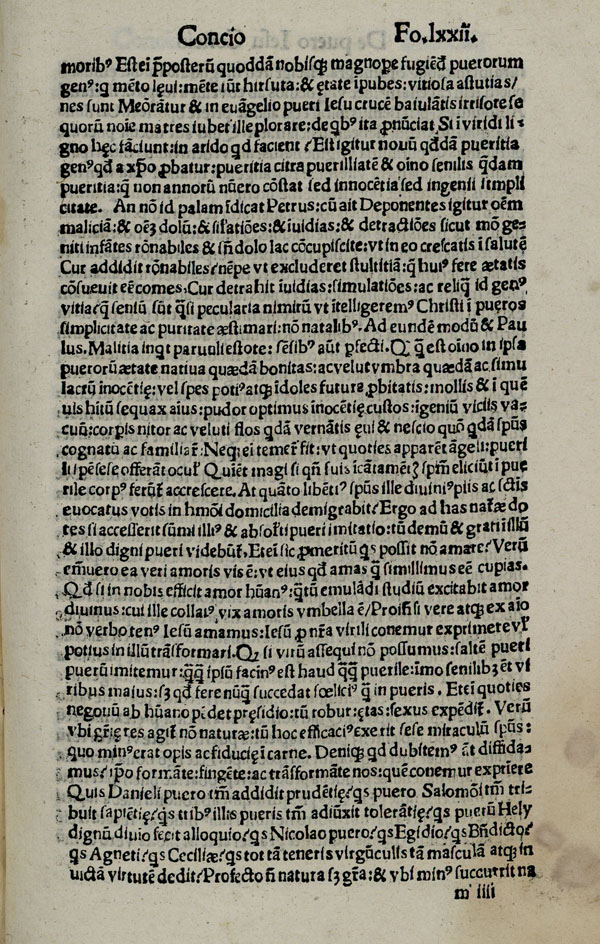 Concio Fo.lxxii.
moribꝰ Est eī p̄posterū quoddā nobisqꝫ magnope fugiēd puerorum
genꝰ:q̄ mēto lęui:mēte sūt hirsuta:& ętate ipubes:vitiosa astutias/
nes sunt Meōrātur & in euāgelio pueri Iesu crucē baiulātis irrisore se
quorū noīe matres iubet ille plorare:de qbꝰ ita ꝓnūciat Si ī viridi li
gno hęc faciunt:in arido qd facient? Est igitur nouū qddā pueritia
genꝰ qd a xp̄o ꝓbatur:pueritia citra puerilitatē & oīno senilis q̄dam
pueritia:q̄ non annorū nūero cōstat sed innocētia sed ingenii simpli
citate. An nō id palam īdicat Petrus:cū ait Deponentes igitur oēm
maliciā:& oēꝫ dolū:& sīlatiōes:& īuidias:& detractiōes sicut mō ge
niti infātes rōnabiles & sn̄ dolo lac cōcupiscite:vt in eo crescatis ī salutē
Cur addidit rōnabiles? nēpe vt excluderet stultitiā:q̄ huiꝰ fere ætatis
cōsueuit eē comes. Cur detrahit īuidias:simulatiōes:ac reliq̄ id genꝰ
vitia? q̄ seniū sūt q̄si pecularia nimirū vt ītelligeremꝰ Christi ī pueros
simplicitate ac puritate æstimari:nō natalibꝰ. Ad eundē modū & Pau
lus. Malitia inqt paruuli estote: sēsibꝰ aūt ꝑfecti. Q q̄ est oīno in ipsa
puerorū ætate natiua quædā bonitas:ac velut vmbra quædā ac simu
lacrū inocētię:vel spes potiꝰ atqꝫ īdoles future ꝓbitatis:mollis & ī quē
uis hītū sequax aīus:pudor optimus īnocētię custos:igeniū viciis va
cuū:corpīs nitor ac veluti flos qdā vernātis ęui & nescio quō qdā spūs
cognatū ac familiar̄:Neqꝫ eī temer̄ fit:vt quoties apparēt āgeli:pueri
li spēse se offerāt oculꝭ Quīet magi si qn̄ suis īcātamētꝭ sp̄m eliciūt ī pue
rile corpꝰ ferūt̄ accrescere. At quāto libētiꝰ spūs ille diuiniꝰ piis ac sctīs
euocatus votis in hmōi domicilia demigrabit? Ergo ad has naturæ do
tes si accesserit sūmi illiꝰ & absoluti pueri imitatio:tū demū & grati illū
& illo digni pueri videbūt̄. Eteī sic ꝓmeritū qs possit nō amare? Verū
em̄uero ea veri amoris vis ē:vt eiusqd amas q̄ simillimus eē cupias.
Qd si in nobis efficit amor hūanꝰ:q̄tū emulādi studiū excitabit amor
diuinus:cui ille collatꝰ vix amoris vmbella ē? Proīfi si vere atqꝫ ex aīo
nō verbo tenꝰ Iesū amamus:Iesū ꝓ nr̄a virili conemur exprimere vl̄
potius in illū transformari. Q si virū assequi nō possumus:saltē pueri
puerū imitemur:q̄q̄ ipsū facinꝰ est haud q̄q̄ puerile:īmo senilibꝫ ēt vi
ribus maius:sꝫ qd fere nūq̄ succedat fœliciꝰ q̄ in pueris. Eteī quoties
negociū ab hūano pēdet pręsidio:tū robur:ętas:sexus expēdit̄. Verū
vbi gr̄ę res agit̄ nō naturæ:tū hoc efficaciꝰ exerit sese miraculū spūs:
quo minꝰ erat opis ac fiducię ī carne. Deniqꝫ qd dubitemꝰ āt diffida
mus? ip̄o formāte:fingēte:ac transformāte nos:quē conemur exprīere
Quis Danieli puero tm̄ addidit prudētię? qs puero Salomōi tm̄ tri
buit sapiētię? qs tribꝰ illis pueris tm̄ adiūxit tolerātię? qs puerū Hely
dignū diuīo fecit alloquio? qs Nicolao puero? qs Egidio? qs Bn̄dicto?
qs Agneti? qs Ceciliæ? qs tot tā teneris virgūculis tā masculā atqꝫ in
uictā virtutē dedit? Profecto n̄ natura sꝫ gr̄a:& vbi minꝰ succurrit na
m iiii